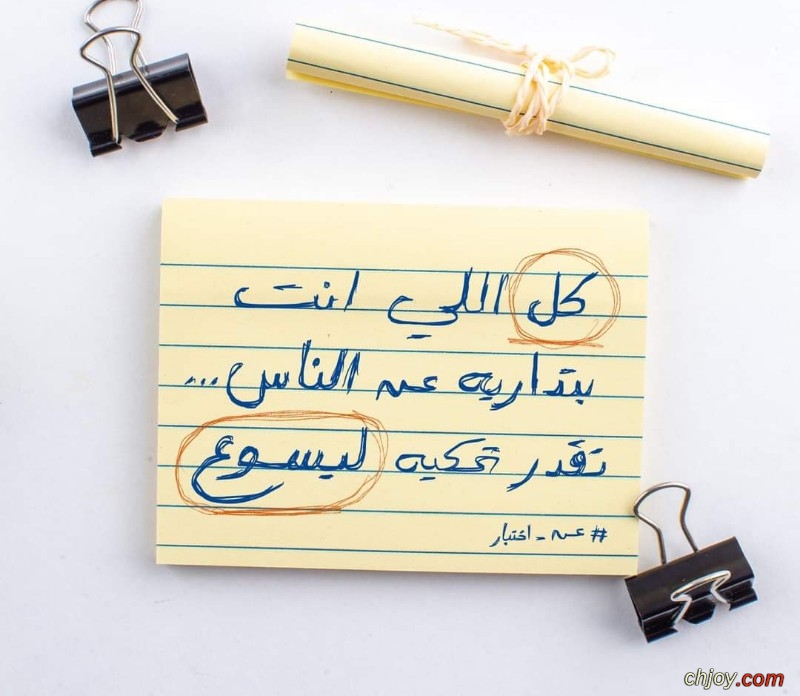 كل اللي انت
بتداريه عن الناس...
تقدر تحكيه ليسوع
#عن-اختبار
chjoy.com